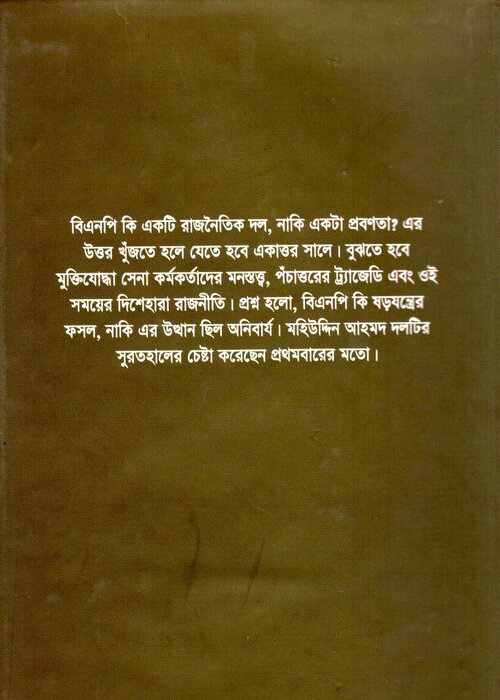 বিএনপি কি একটি রাজনৈতিক দল, নাকি একটা প্রবণতা? এর
উত্তর খুঁজতে হলে যেতে হবে একাত্তর সালে। বুঝতে হবে
মুক্তিযোদ্ধা সেনা কর্মকর্তাদের মনস্তত্ত্ব, পঁচাত্তরের ট্র্যাজেডি এবং ওই
সময়ের দিশেহারা রাজনীতি। প্রশ্ন হলো, বিএনপি কি ষড়যন্ত্রের
ফসল, নাকি এর উত্থান ছিল অনিবার্য। মহিউদ্দিন আহমদ দলটির
সুরতহালের চেষ্টা করেছেন প্রথমবারের মতো।